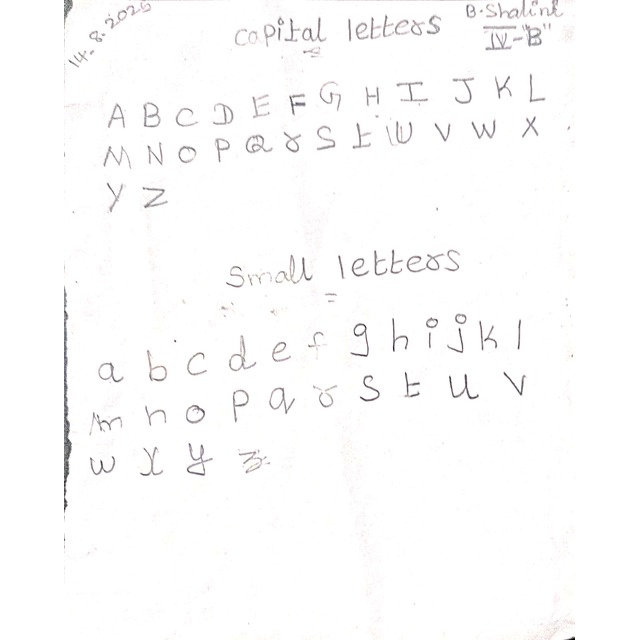 14.8.2025
capital letters
B. Shalini
IV-"B"
A B C D E F G H I J K L
M N O P Q r S t U V W X
Y Z
Small letters
a b c d e f g h i j k l
m n o p q r s t u v
w x y z